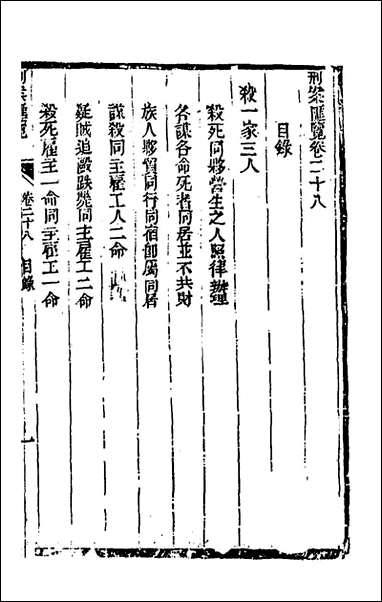 刑案匯覽卷二十八
目錄
殺一家三人
殺死同夥營生之人照律辦理
各謀各命死者同居並不共財
族人夥貿同行同宿卽屬同居
謀殺同主雇工人二命
疑賊追毆跌斃同主雇工二命
殺死雇主一命同主雇工一命
刑案匯覽 卷二十八 目錄 一